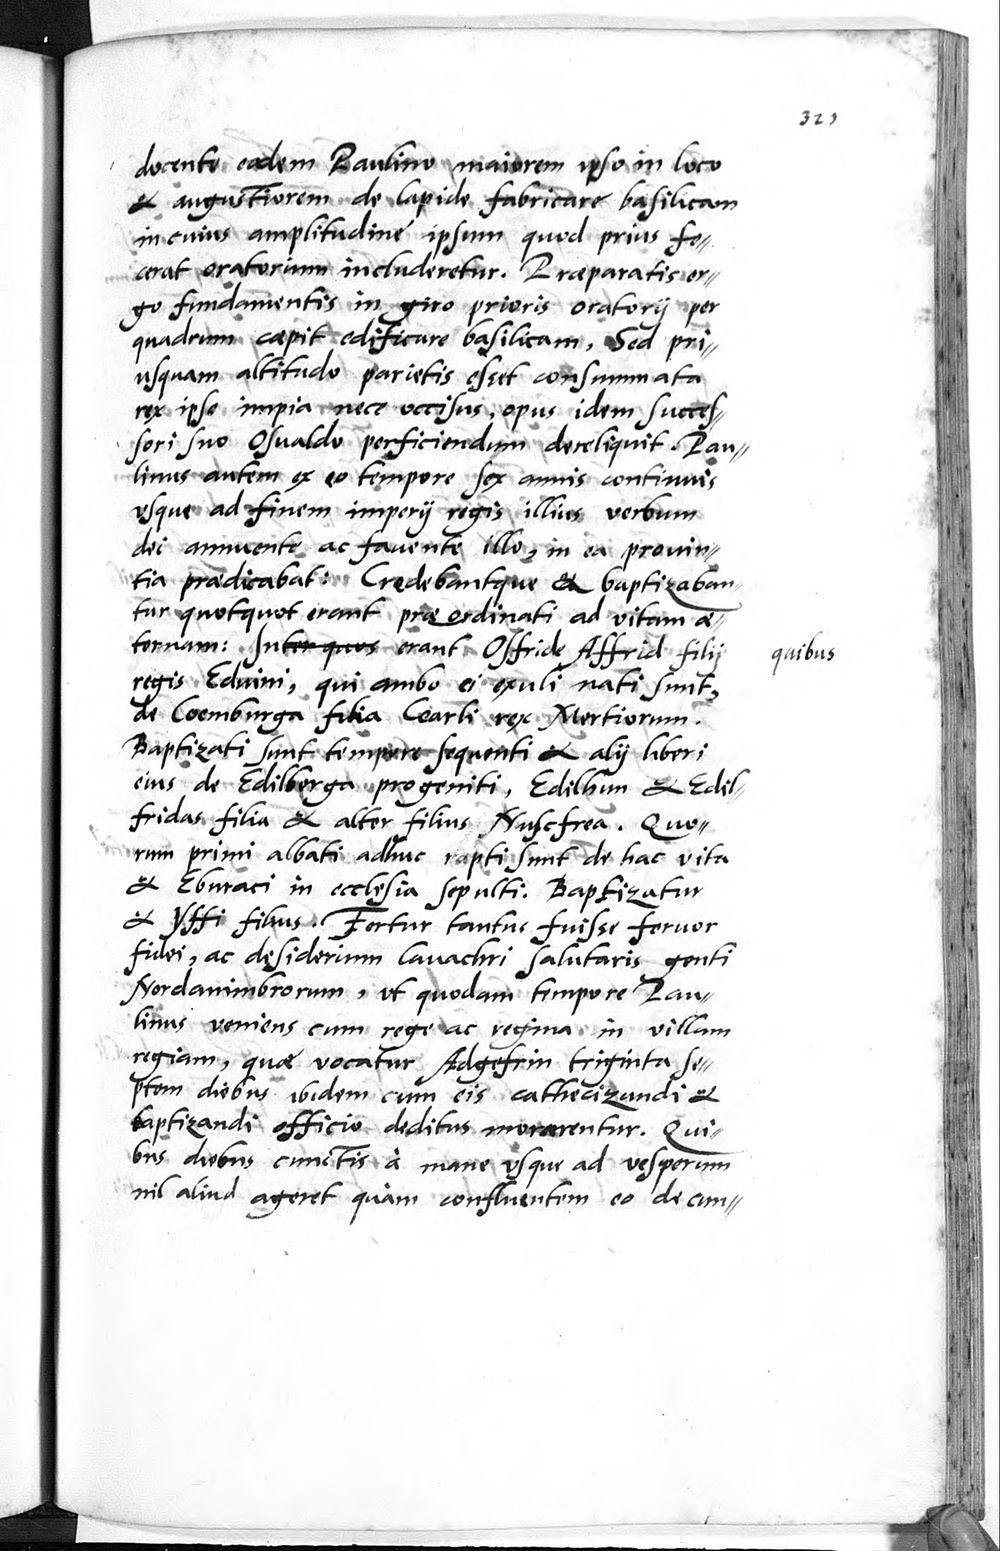 321
docente eodem Paulino maiorem ipso in loco
& augustiorem de lapide fabricare basilicam
in cuius amplitudine ipsum quod prius fe//
cerat oratorium includeretur. Præparatis er//
go fundamentis in giro prioris oratorij per
quadrum cæpit edificare basilicam, Sed pri//
usquam altitudo parietis esset consummata
rex ipse impia nece occisus, opus idem succes//
sori suo Osualdo perficiendum dereliquit. Pau//
linus autem ex eo tempore sex annis continuis
vsque ad finem imperij regis illius verbum
dei annuente ac fauente illo, in ea prouin//
tia prædicabat: Credebantque & baptizaban//
tur quotquot erant præordinati ad vitam æ//
ternam: Inter quos erant Osfride Affrid filij quibus
regis Eduini, qui ambo ei exuli nati sunt,
de Coemburga filia Cearli rex Mertiorum.
Baptizati sunt tempore sequenti & alij liberi
eius de Edilberga progeniti, Edilhun & Edil//
fridas filia & alter filius Nuscfrea. Quo//
rum primi albati adhuc rapti sunt de hac vita
& Eburaci in ecclesia sepulti. Baptizatur
& Yffi filius. Fertur tantus fuisse feruor
fidei, ac desiderium lauachri salutaris genti
Nordanimbrorum, vt quodam tempore Pau//
linus veniens cum rege ac regina in villam
regiam, quæ vocatur Adgefrin triginta se//
ptem diebus ibidem cum eis cathecizandi &
baptizandi officio deditus morarentur. Qui//
bus diebus cunctis à mane vsque ad vesperum
nil aliud ageret quàm confluentem eo de cun//